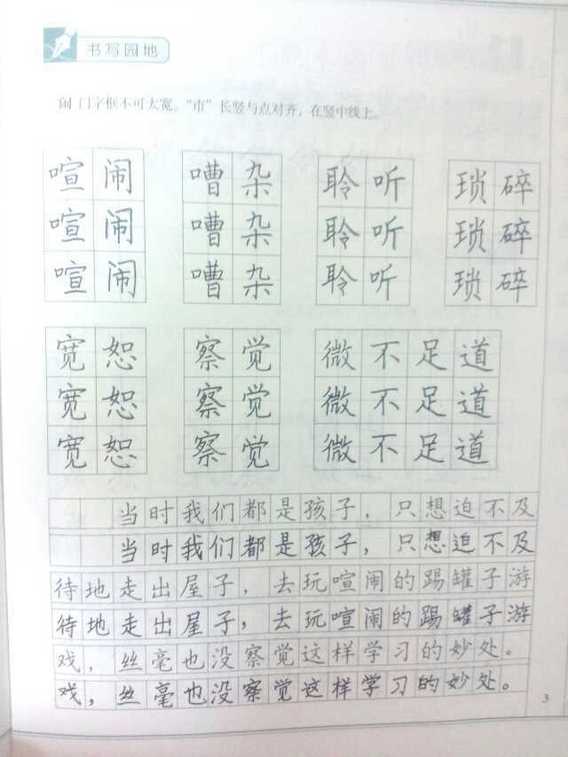 书写园地
闹 门字框不可太宽。“市”长竖与点对齐，在竖中线上。
喧闹 嘈杂 聆听 琐碎
喧闹 嘈杂 聆听 琐碎
喧闹 嘈杂 聆听 琐碎
宽恕 察觉 微不足道
宽恕 察觉 微不足道
宽恕 察觉 微不足道
当时我们都是孩子，只想迫不及
当时我们都是孩子，只想迫不及
待地走出屋子，去玩喧闹的踢罐子游
待地走出屋子，去玩喧闹的踢罐子游
戏，丝毫也没察觉这样学习的妙处。
戏，丝毫也没察觉这样学习的妙处。
3